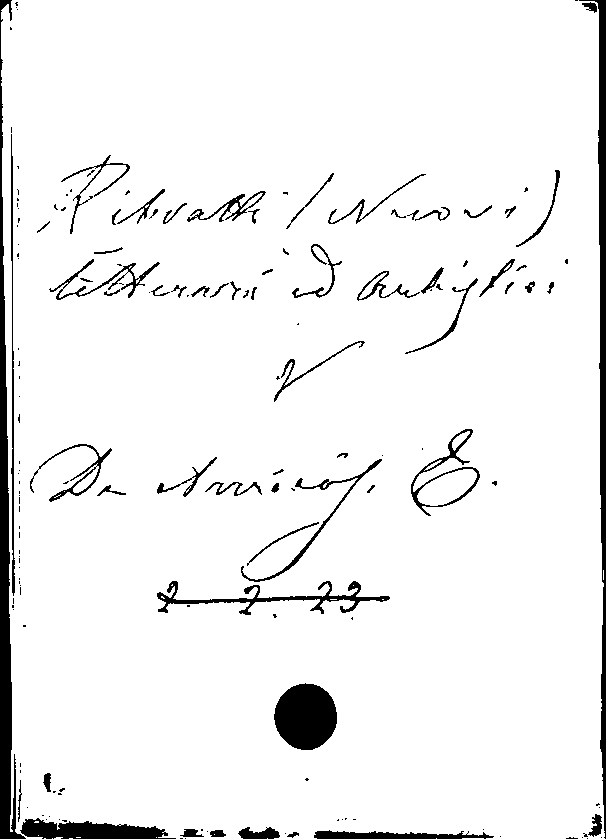 Ritratti (Nuovi)
letterari ed artistici
V
De Amicis, E.
2 2. 23